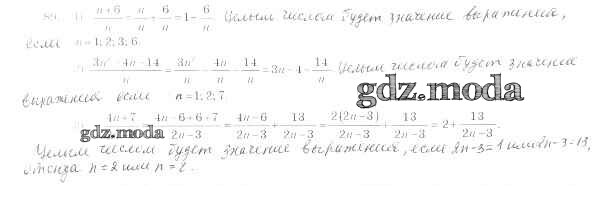 89. 1) n+6/n = n/n + 6/n = 1- 6/n. Целым числом будет значение выражений,
если n=1; 2; 3; 6.
3n²-4n-14/n = 3n²/n - 4n/n - 14/n = 3n-4- 14/n Целым числом будет значение
выражений если n=1; 2; 7.
gdz.moda
4n+7/ = 4n-6+6+7/2n-3 = 4n-6/2n-3 + 13/2n-3 = 2(2n-3)/2n-3 + 13/2n-3 = 2+ 13/2n-3.
gdz.moda
Целым числом будет значение выражения, если 2n-3=1 или 2n-3-13,
отсюда n=2 или n=